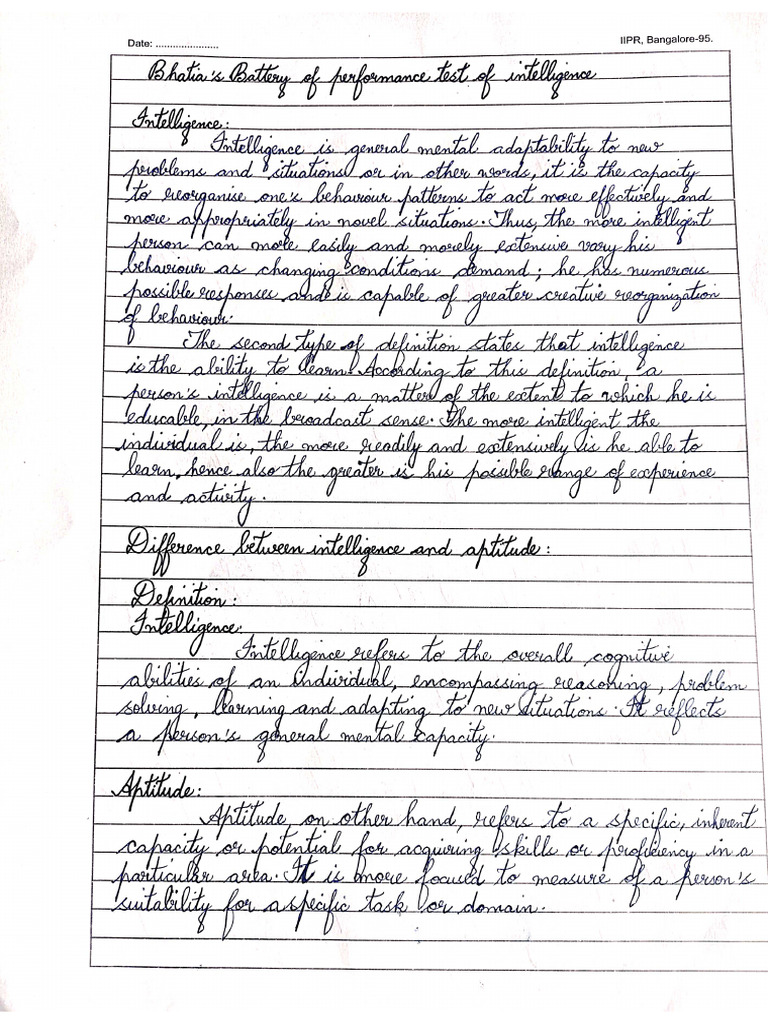 Date: ......................
IIPR, Bangalore-95.
Bhatia's Battery of performance test of intelligence
Intelligence:
Intelligence is general mental adaptability to new
problems and situations or in other words, it is the capacity
to reorganise one's behaviour patterns to act more effectively and
more appropriately in novel situations. Thus, the more intelligent
person can more easily and morely extensive vary his
behaviour as changing conditions demand; he has numerous
possible responses and is capable of greater creative reorganization
of behaviour.
The second type of definition states that intelligence
is the ability to learn. According to this definition, a
person's intelligence is a matter of the extent to which he is
educable, in the broadcast sense. The more intelligent the
individual is, the more readily and extensively is he able to
learn, hence also the greater is his possible range of experience
and activity.
Difference between intelligence and aptitude:
Definition:
Intelligence:
Intelligence refers to the overall cognitive
abilities of an individual, encompassing reasoning, problem
solving, learning and adapting to new situations. It reflects
a person's general mental capacity.
Aptitude:
Aptitude on other hand, refers to a specific, inherent
capacity or potential for acquiring skills or proficiency in a
particular area. It is more focused to measure of a person's
suitability for a specific task or domain.